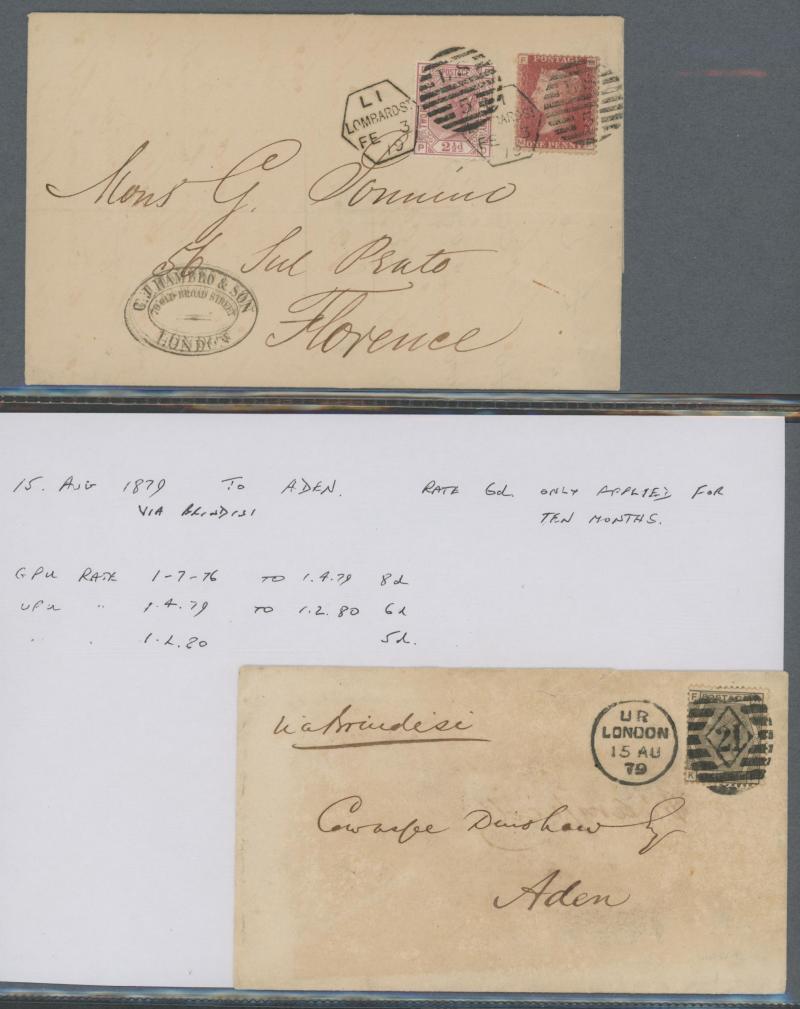 L1
LOMBARD ST
FE 3
79
POSTAGE
2½d
ONE PENNY
Mons G.
56 Sul Prato
Florence
C. J. HAMBRO & SON
70 OLD BROAD STREET
LONDON
15. AUG 1879 TO ADEN. RATE 6d. ONLY APPLIED FOR
VIA BRINDISI TEN MONTHS.
GPU RATE 1-7-76 TO 1.4.79 8d
UPU " 1.4.79 TO 1.2.80 6d
" " 1.2.80 5d.
via Brindisi
UR
LONDON
15 AU
79
POSTAGE
21
Cowasjee Dinshaw Esq
Aden